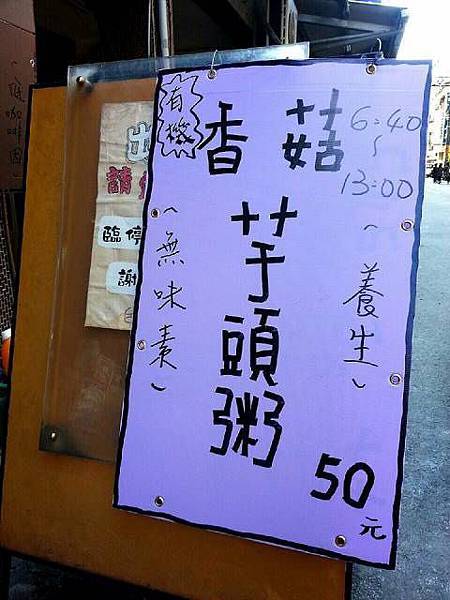 有機
香菇
芋頭粥
(無味素)
(養生)
6:40
~
13:00
50元
請
臨停
謝